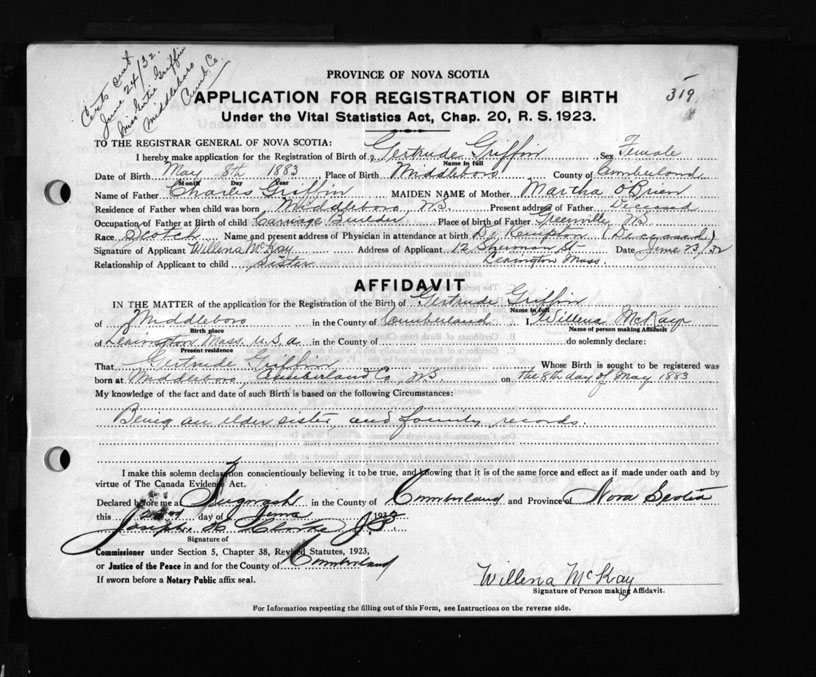 Certs cut
June 24/32
Miss Gertie Griffin
Middleboro
Cumb. Co.
319
PROVINCE OF NOVA SCOTIA
APPLICATION FOR REGISTRATION OF BIRTH
Under the Vital Statistics Act, Chap. 20, R. S. 1923.
TO THE REGISTRAR GENERAL OF NOVA SCOTIA:
I hereby make application for the Registration of Birth of Gertrude Griffin Sex Female
Name in full
Date of Birth May 8th 1883 Place of Birth Middleboro County of Cumberland
Month Day Year
Name of Father Charles Griffin MAIDEN NAME of Mother Martha O'Brien
Residence of Father when child was born Middleboro, N.S. Present address of Father Deceased
Occupation of Father at Birth of child Carriage Builder Place of birth of Father Greenville N.S.
Race Scotch Name and present address of Physician in attendance at birth Dr Kempton (Deceased)
Signature of Applicant Willena McKay Address of Applicant 12 St Date June 23/32
Relationship of Applicant to child Sister Lexington Mass.
AFFIDAVIT
IN THE MATTER of the application for the Registration of the Birth of Gertrude Griffin
Name in full
of Middleboro in the County of Cumberland I, Willena McKay
Birth place Name of person making Affidavit
of Lexington Mass. U.S.A. in the County of do solemnly declare:
Present residence
That Gertrude Griffin Whose Birth is sought to be registered was
born at Middleboro, Cumberland Co., N.S. on the 8th day of May 1883
My knowledge of the fact and date of such Birth is based on the following Circumstances:
Being an elder sister, and family records.
I make this solemn declaration conscientiously believing it to be true, and knowing that it is of the same force and effect as if made under oath and by
virtue of The Canada Evidence Act.
Declared before me at Pugwash in the County of Cumberland and Province of Nova Scotia
this day of June 1932
Joseph H. Clarke J.P.
Signature of
Commissioner under Section 5, Chapter 38, Revised Statutes, 1923,
or Justice of the Peace in and for the County of Cumberland
If sworn before a Notary Public affix seal.
Willena McKay
Signature of Person making Affidavit.
For Information respecting the filling out of this Form, see Instructions on the reverse side.